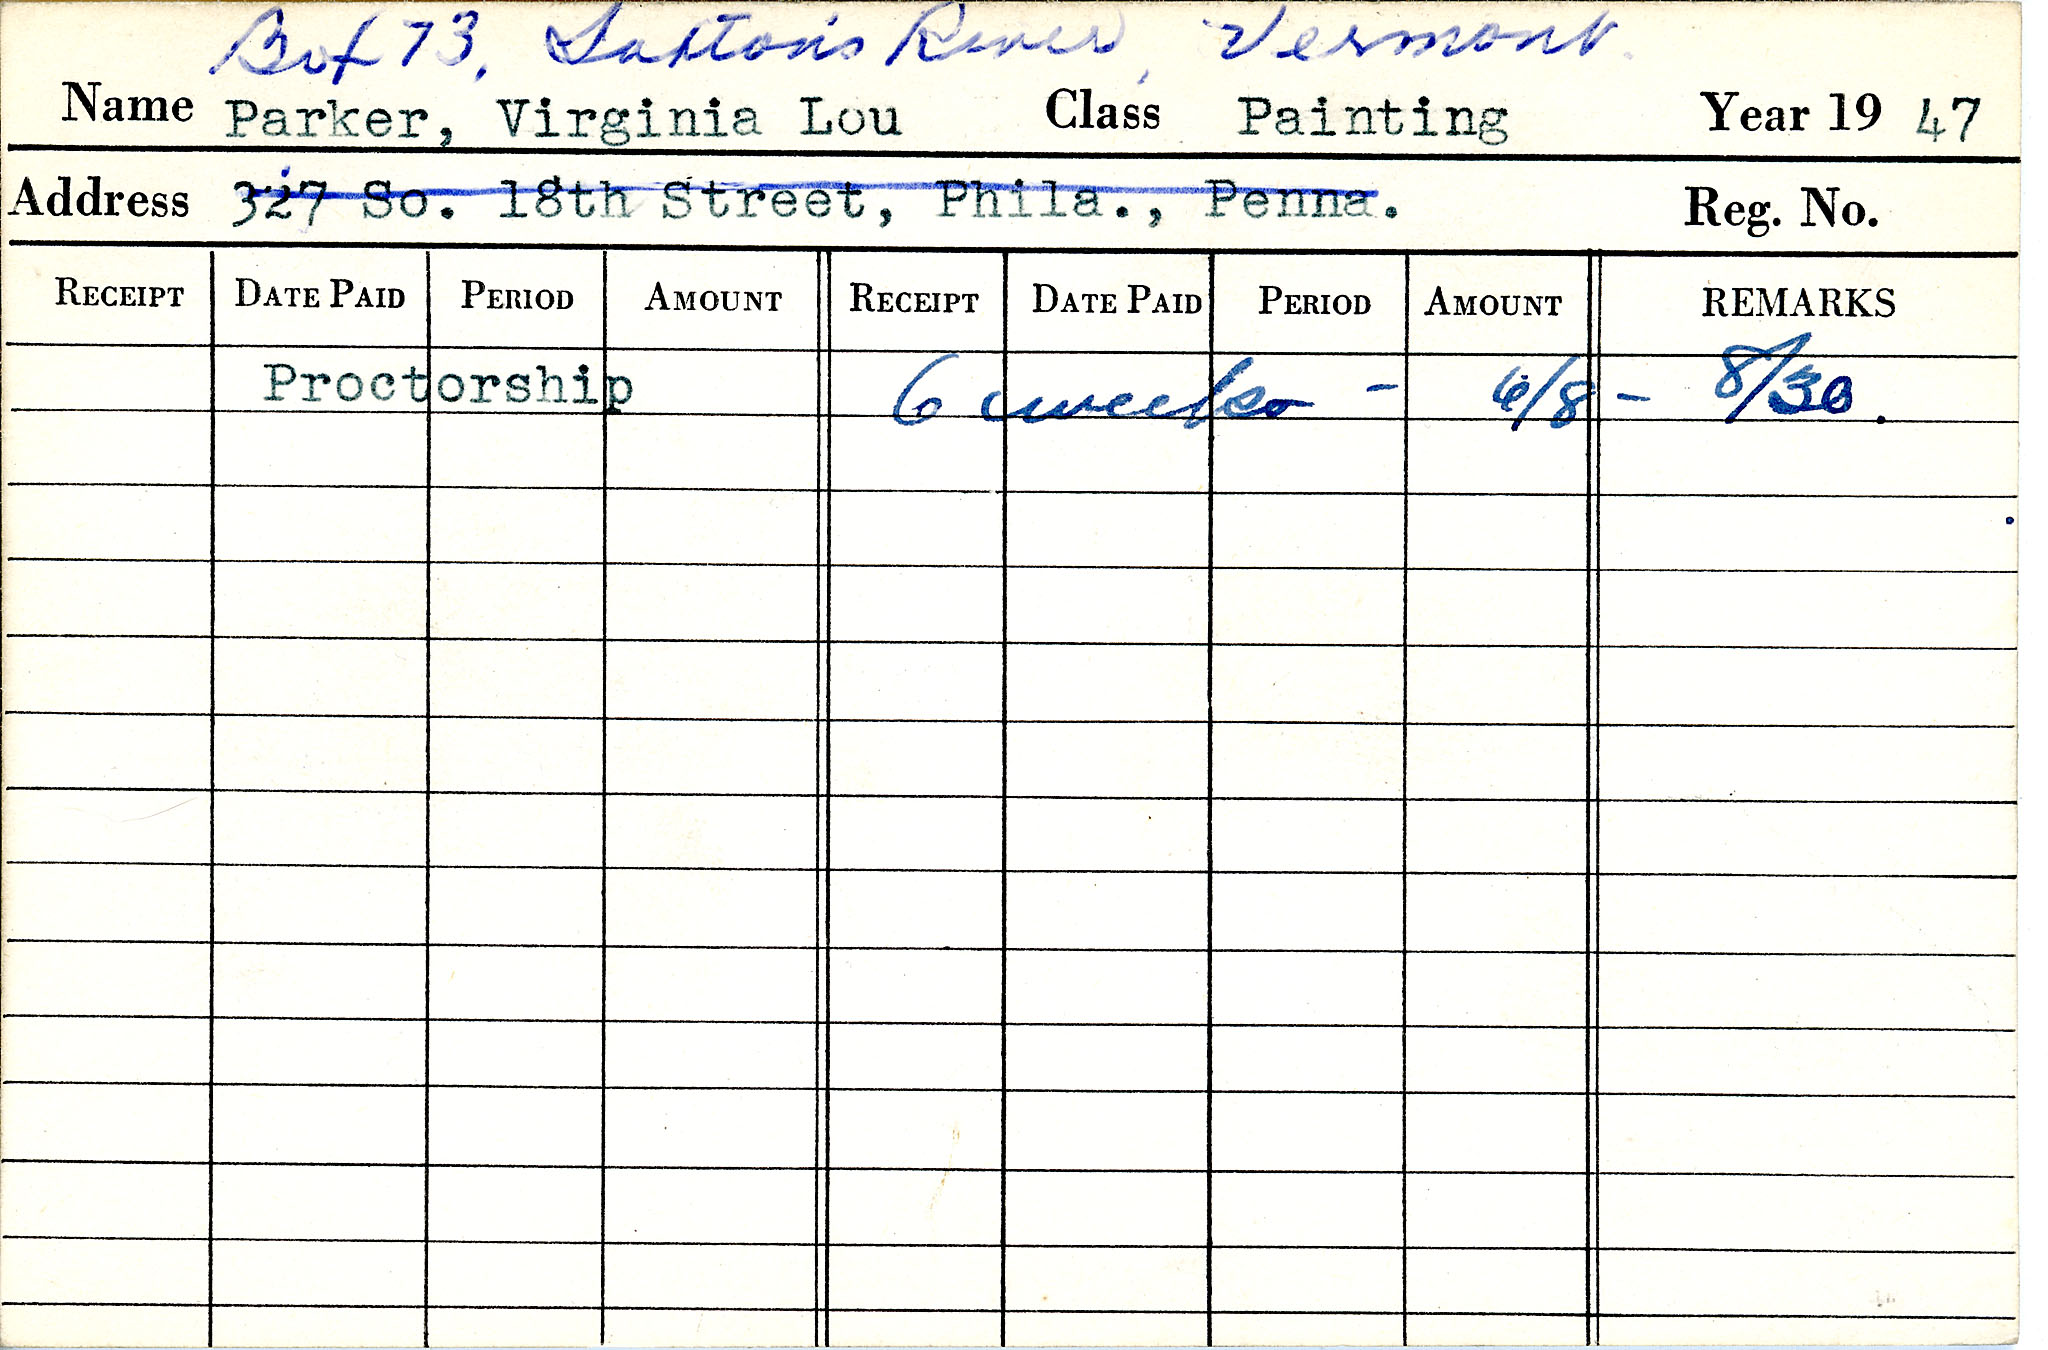 Box 73, Saxtons River, Vermont.
Name Parker, Virginia Lou Class Painting Year 19 47
Address 327 So. 18th Street, Phila., Penna. Reg. No.
RECEIPT DATE PAID PERIOD AMOUNT RECEIPT DATE PAID PERIOD AMOUNT REMARKS
Proctorship 6 weeks - 6/8 - 8/30.